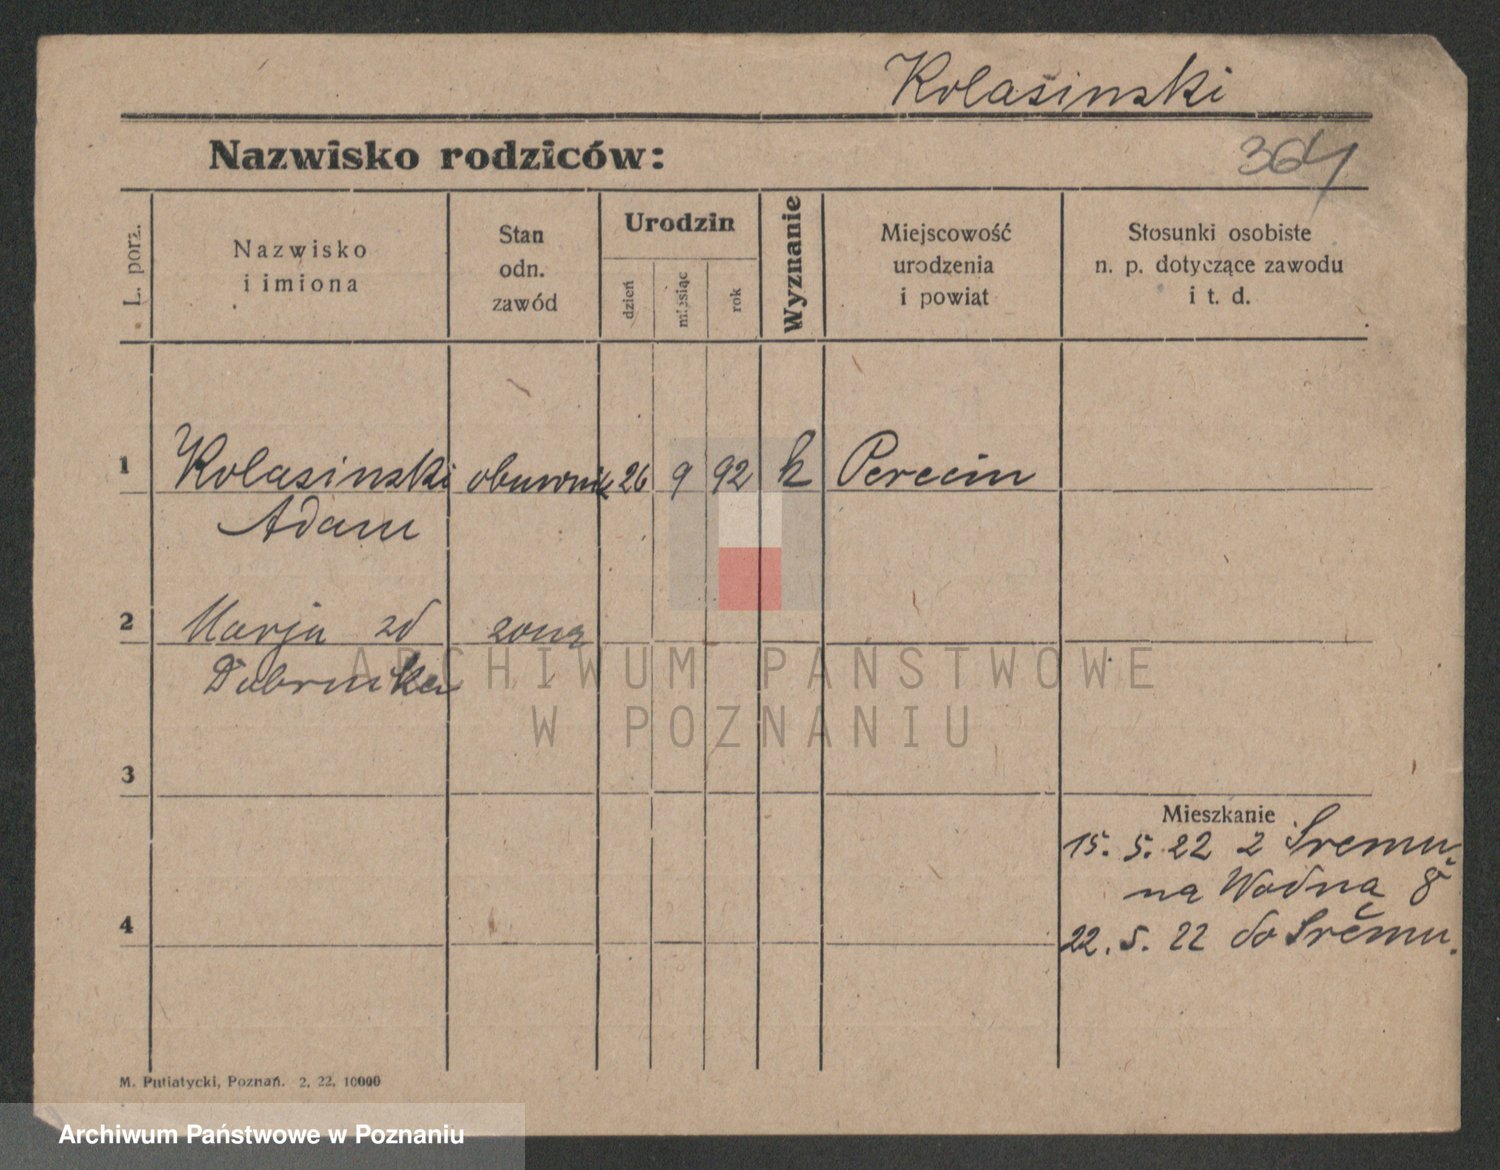 Kolasinski
Nazwisko rodziców:
364
L. porz.
Nazwisko
i imiona
Stan
odn.
zawód
Urodzin
dzień
miesiąc
rok
Wyznanie
Miejscowość
urodzenia
i powiat
Stosunki osobiste
n. p. dotyczące zawodu
i t. d.
1 Kolasinski obuwnik 26 9 92 k Perecin
Adam
2 Marja zd zona
ARCHIWUM PAŃSTWOWE
W POZNANIU
3
Mieszkanie
15. 5. 22 z Sremu
na Wodną 8
4
22. 5. 22 do Sremu.
M. Putiatycki, Poznań. 2. 22. 10000
Archiwum Państwowe w Poznaniu